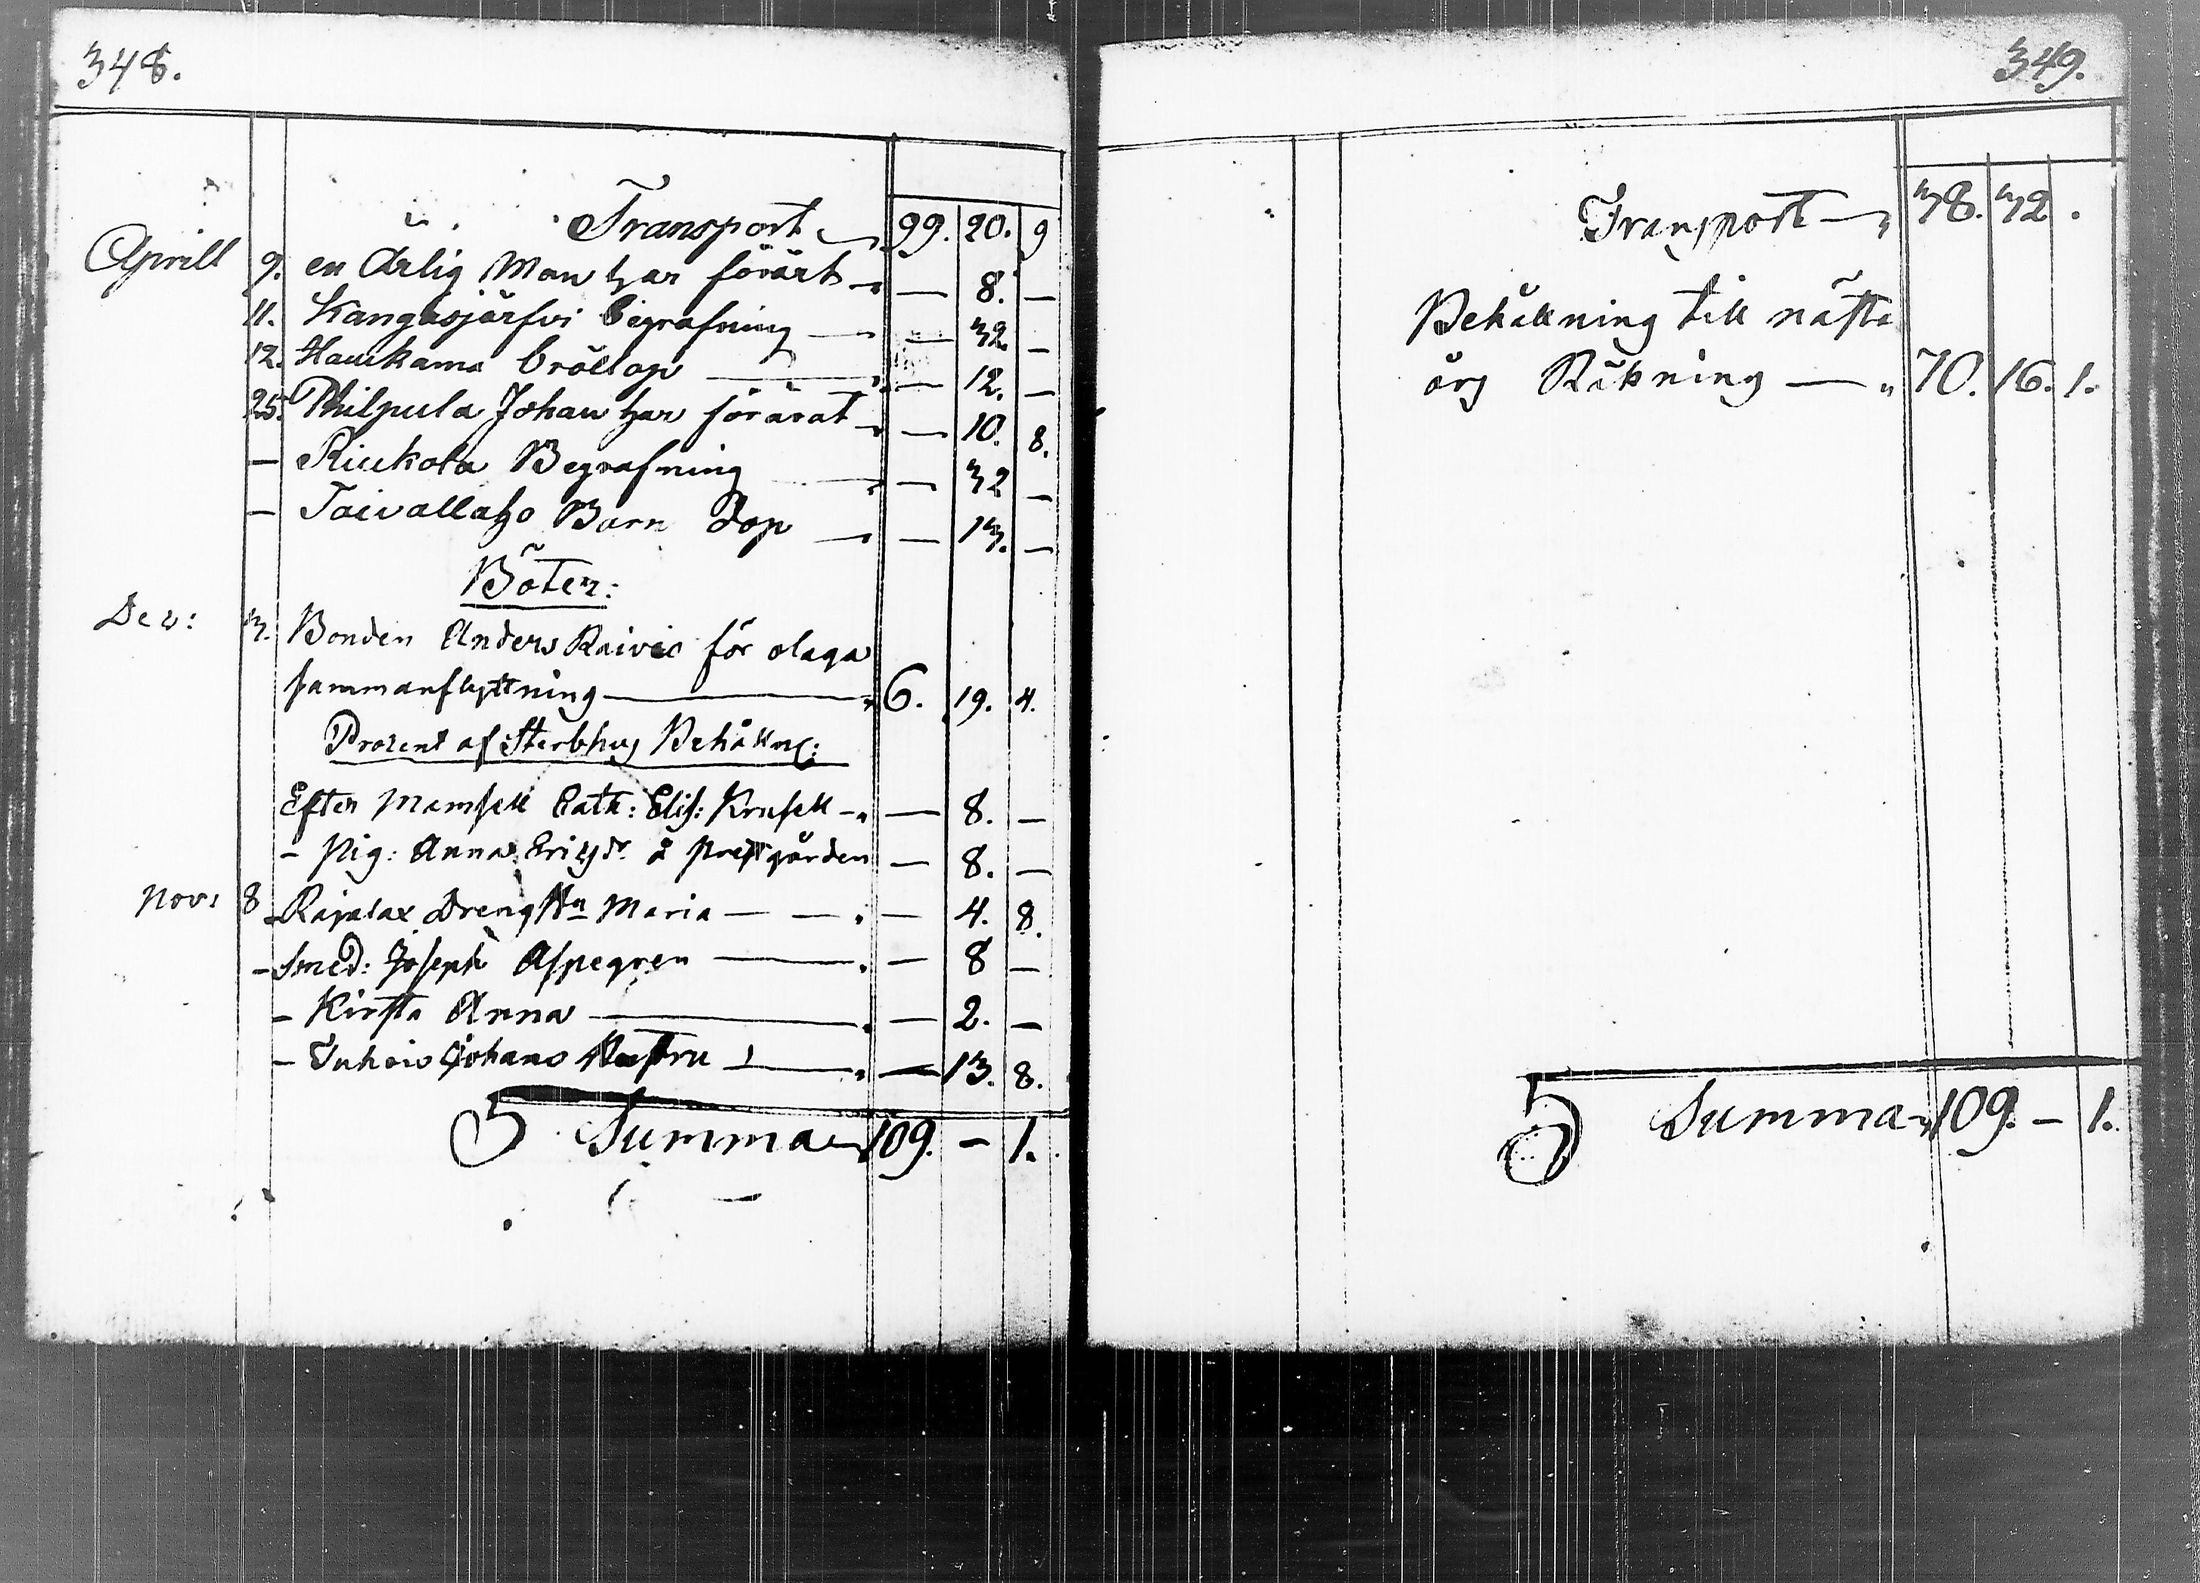 348.
Transport 99. 20. 9
Aprill 9. en Ärlig Man har förärt — 8. —
11. Kangasjärfvi begrafning — 32. —
12. Haukama bröllop — 12. —
25. Philpula Johan har förärat — 10. 8.
— Riukola Begrafning — 32 —
— Taivallaho Barn Dop — 13. —
Böter:
Dec: 3. Bonden Anders Raivio för olaga
sammanflyttning 6. 19. 4.
Procent af Sterbhus Behålln:
Efter Mamsell Cath: Elis: Krusell — 8. —
- Pig: Anna Ericsdr å prestgården — 8. —
Nov: 8 - Rajalax Dreng Maria — 4. 8.
- Smed: Joseph Aspegren — 8 —
- Kirsta Anna — 2. —
- Juhois Johans Hustru — 13. 8.
Summa 109. — 1.
349.
Transport 38. 32.
Behållning till nästa
års Räkning 70. 16. 1.
Summa 109. — 1.